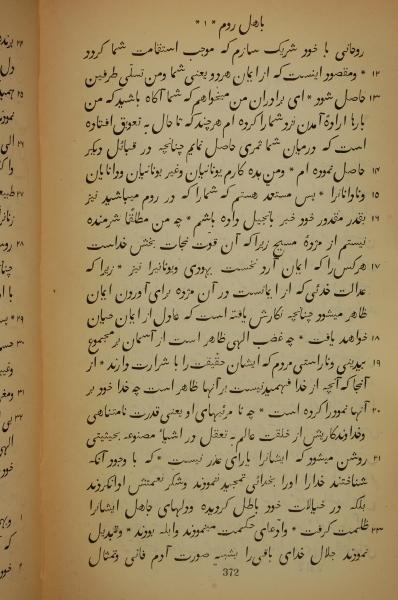 باهل روم * ۱ *
روحانی با خود شریک سازم که موجب استقامت شما گردد
۱۲ * ومقصود اینست که از ایمان هردو یعنی شما ومن تسلّی طرفین
۱۳ حاصل شود * ای برادران من میخواهم که شما آگاه باشید که من
بارها ارادهٔ آمدن نزد شما را کرده ام هرچند که تا حال به تعویق افتاده
است که درمیان شما ثمری حاصل نمایم چنانچه در قبائل دیگر
۱۴ حاصل نموده ام * ومن بده کارم یونانیان وغیر یونانیان ودانایان
۱۵ ونادانانرا * پس مستعد هستم که شما را که در روم میباشید نیز
۱۶ بقدر مقدور خود خبر بانجیل داده باشم * چه من مطلقًا شرمنده
نیستم از مژدهٔ مسیح زیرا که آن قوت نجات بخش خداست
۱۷ هرکس را که ایمان آرد نخست یهودی ویونانیرا نیز * زیرا که
عدالت خدائی که از ایمانست در آن مژده برای آوردن ایمان
ظاهر میشود چنانچه نگارش یافته است که عادل از ایمان حیات
۱۸ خواهد یافت * چه غضب الهی ظاهر است از آسمان بر مجموع
۱۹ بیدینی وناراستی مردم که ایشان حقیقت را با شرارت دارند * از
آنجا که آنچه از خدا فهمیدنیست بر آنها ظاهر است چه خدا خود بر
۲۰ آنها نمودار کرده است * چه نا مرئیهای او یعنی قدرت نامتناهی
وخداوندکاریش از خلقت عالم به تعقل در اشیا مصنوعه بحیثیتی
۲۱ روشن میشود که ایشانرا یارای عذر نیست * که با وجود آنکه
شناختند خدا را اورا بخدائی تمجید ننمودند وشکر نعمتش ادا نکردند
بلکه در خیالات خود باطل گردیده ودلهای جاهل ایشانرا
ظلمت گرفت * وادعای حکمت مینمودند وابله بودند * وتبدیل
نمودند جلال خدای باقی را بشبیه صورت آدم فانی وتمثال
372